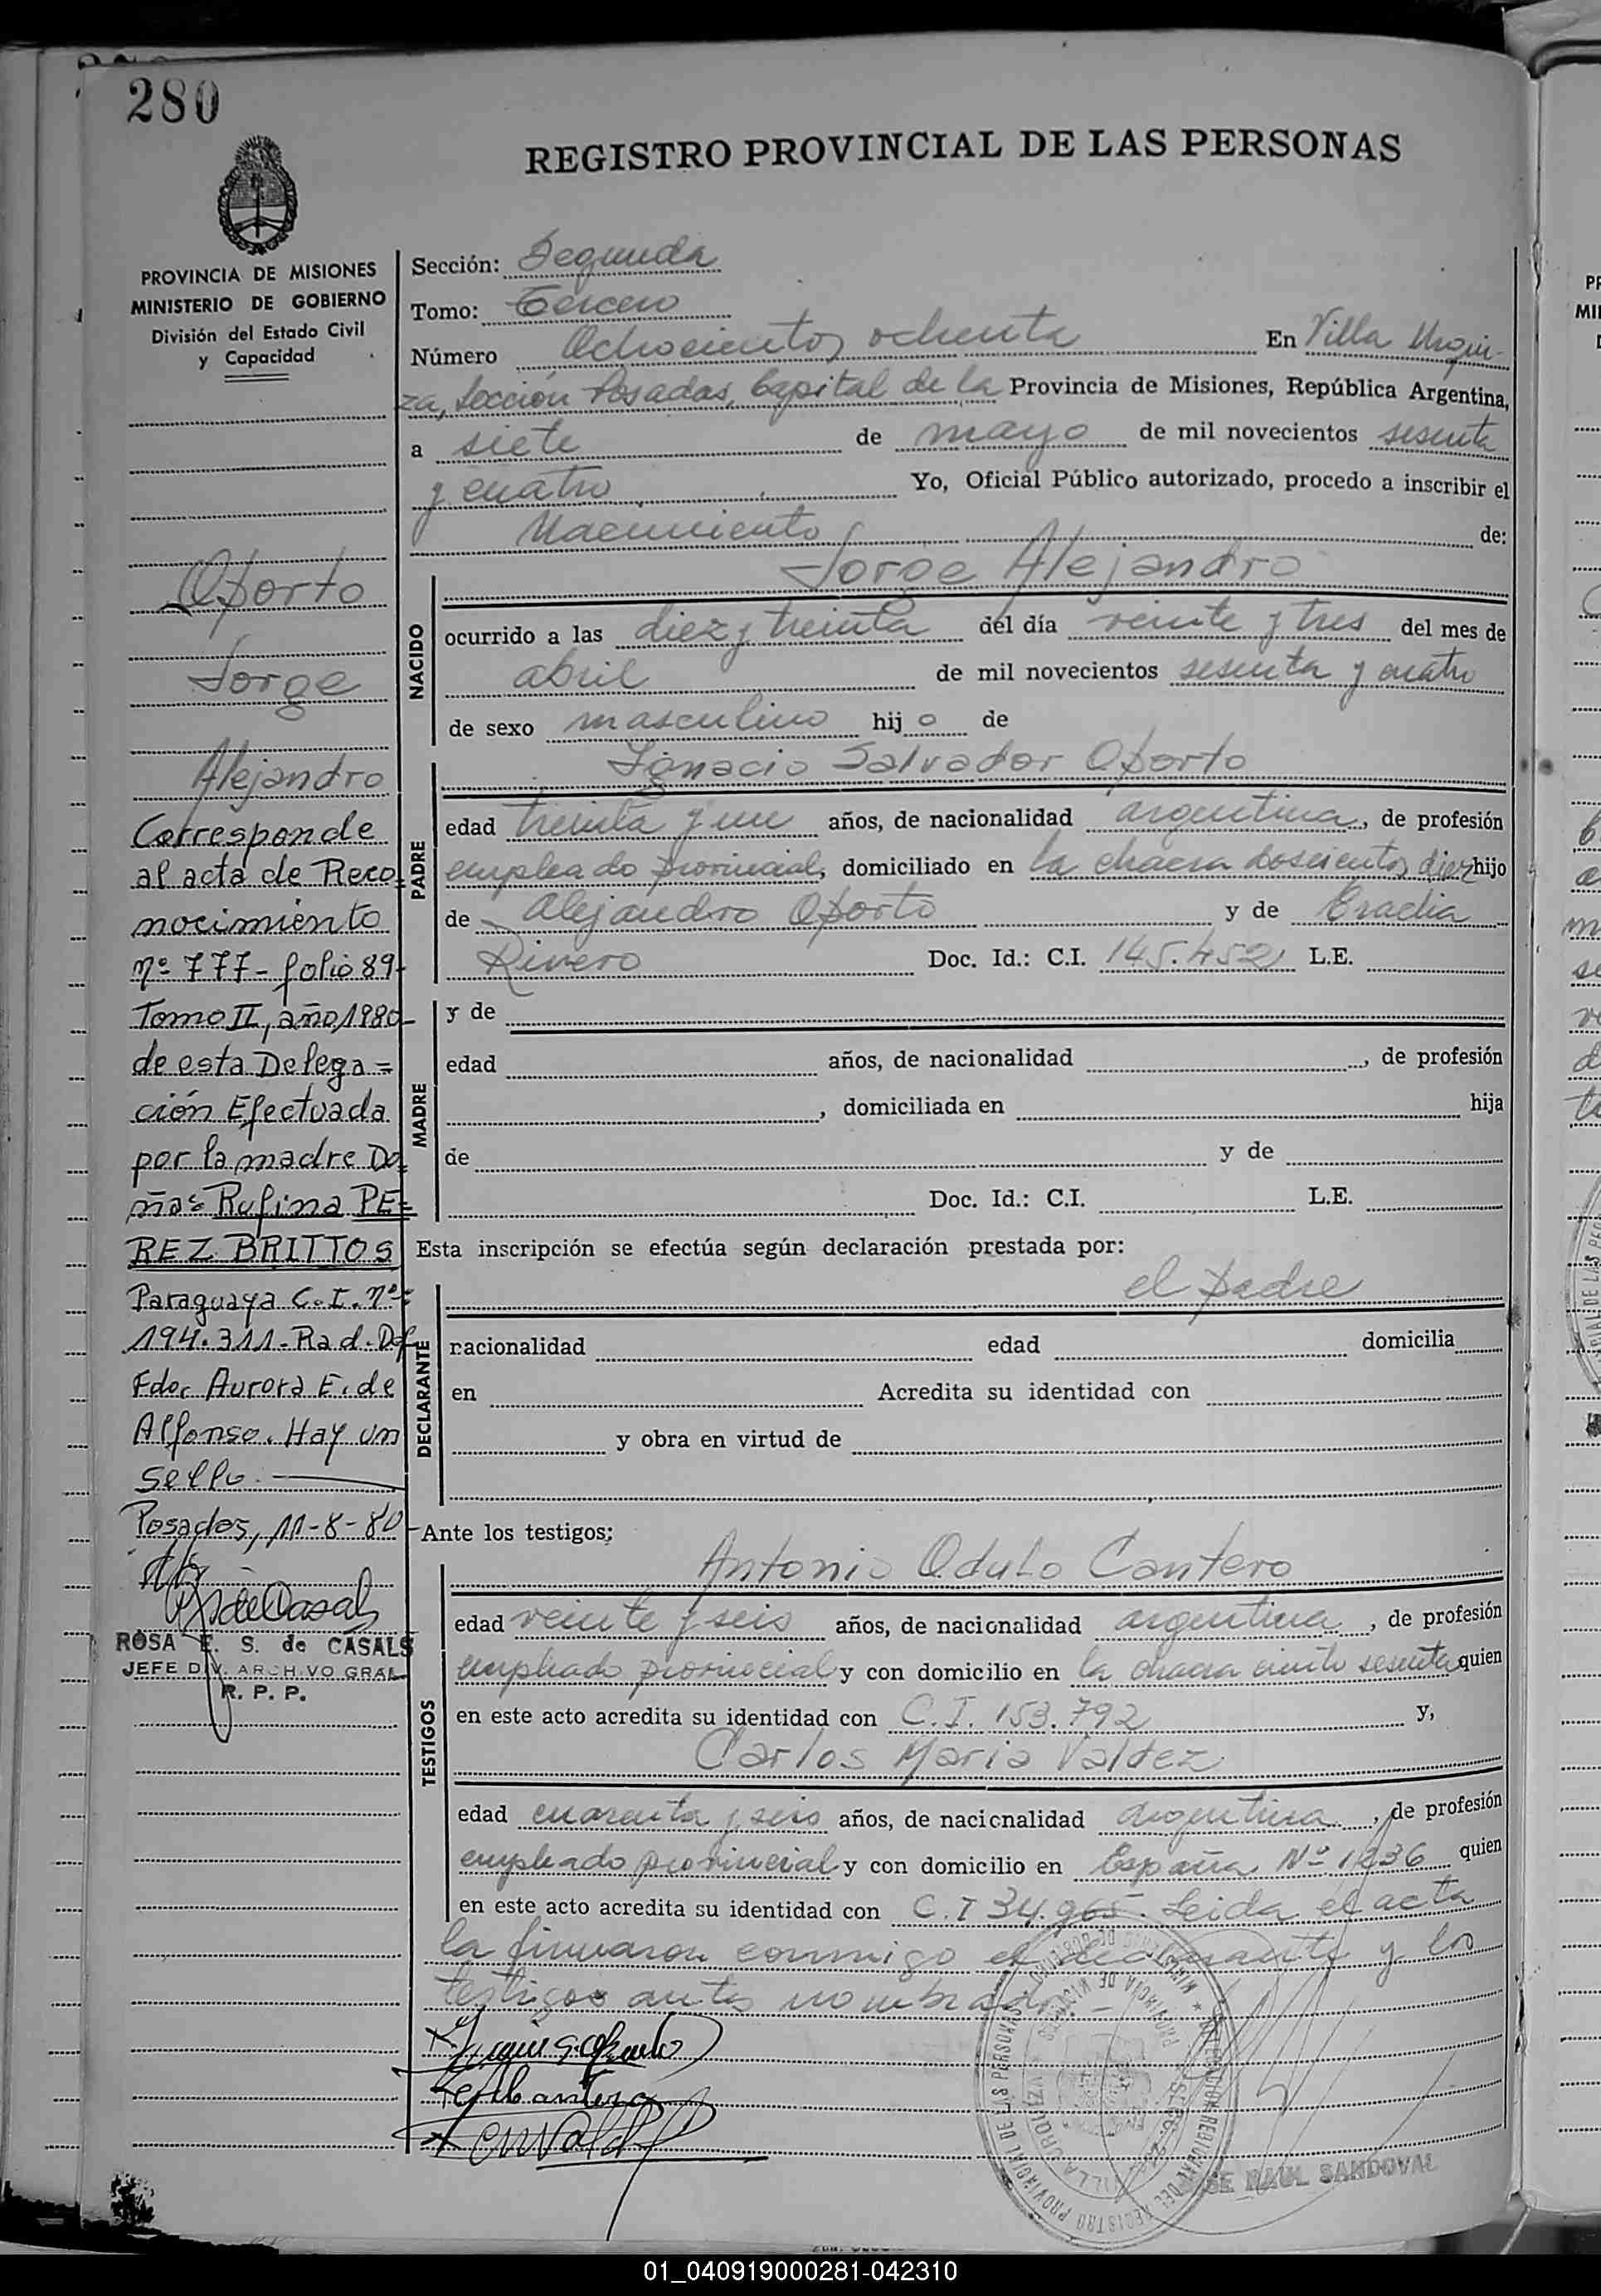 280
REGISTRO PROVINCIAL DE LAS PERSONAS
PROVINCIA DE MISIONES
MINISTERIO DE GOBIERNO
División del Estado Civil
y Capacidad
Oporto
Jorge
Alejandro
Corresponde
al acta de Reco-
nocimiento
nº 777- folio 89-
Tomo II, año 1980
de esta Delega=
ción Efectuada
por la madre Do
ña: Rufina PE=
REZ BRITTOS
Paraguaya C.I. nº:
194.311-Rad. Def
Fdo. Aurora E. de
Alfonso. Hay un
sello.
Posadas, 11-8-80
ROSA E. S. de CASALS
JEFE DIV. ARCHIVO GRAL
R. P. P.
Sección: Segunda
Tomo: Tercero
Número Ochocientos ochenta En Villa Urqui-
za, Sección Posadas, Capital de la Provincia de Misiones, República Argentina,
a siete de mayo de mil novecientos sesenta
y cuatro Yo, Oficial Público autorizado, procedo a inscribir el
Nacimiento de:
Jorge Alejandro
NACIDO
ocurrido a las diez y treinta del día veinte y tres del mes de
abril de mil novecientos sesenta y cuatro
de sexo masculino hijo de
Ignacio Salvador Oporto
PADRE
edad treinta y un años, de nacionalidad argentina, de profesión
empleado provincial, domiciliado en la chacra doscientos diez hijo
de Alejandro Oporto y de
Rivero Doc. Id.: C.I. 145.452 L.E.
MADRE
y de
edad años, de nacionalidad , de profesión
, domiciliada en hija
de y de
Doc. Id.: C.I. L.E.
Esta inscripción se efectúa según declaración prestada por:
el padre
DECLARANTE
racionalidad edad domicilia
en Acredita su identidad con
y obra en virtud de
Ante los testigos:
Antonio Odulo Cantero
TESTIGOS
edad veinte y seis años, de nacionalidad argentina, de profesión
empleado provincial y con domicilio en la chacra ciento sesenta quien
en este acto acredita su identidad con C.I. 153.792 y,
Carlos Maria Valdez
edad cuarenta y seis años, de nacionalidad argentina, de profesión
empleado provincial y con domicilio en España Nº 1236 quien
en este acto acredita su identidad con C.I 34.965. Leida el acta
la firmaron conmigo el declarante y los
testigos antes nombrados.
RAUL SANDOVAL
01_040919000281-042310